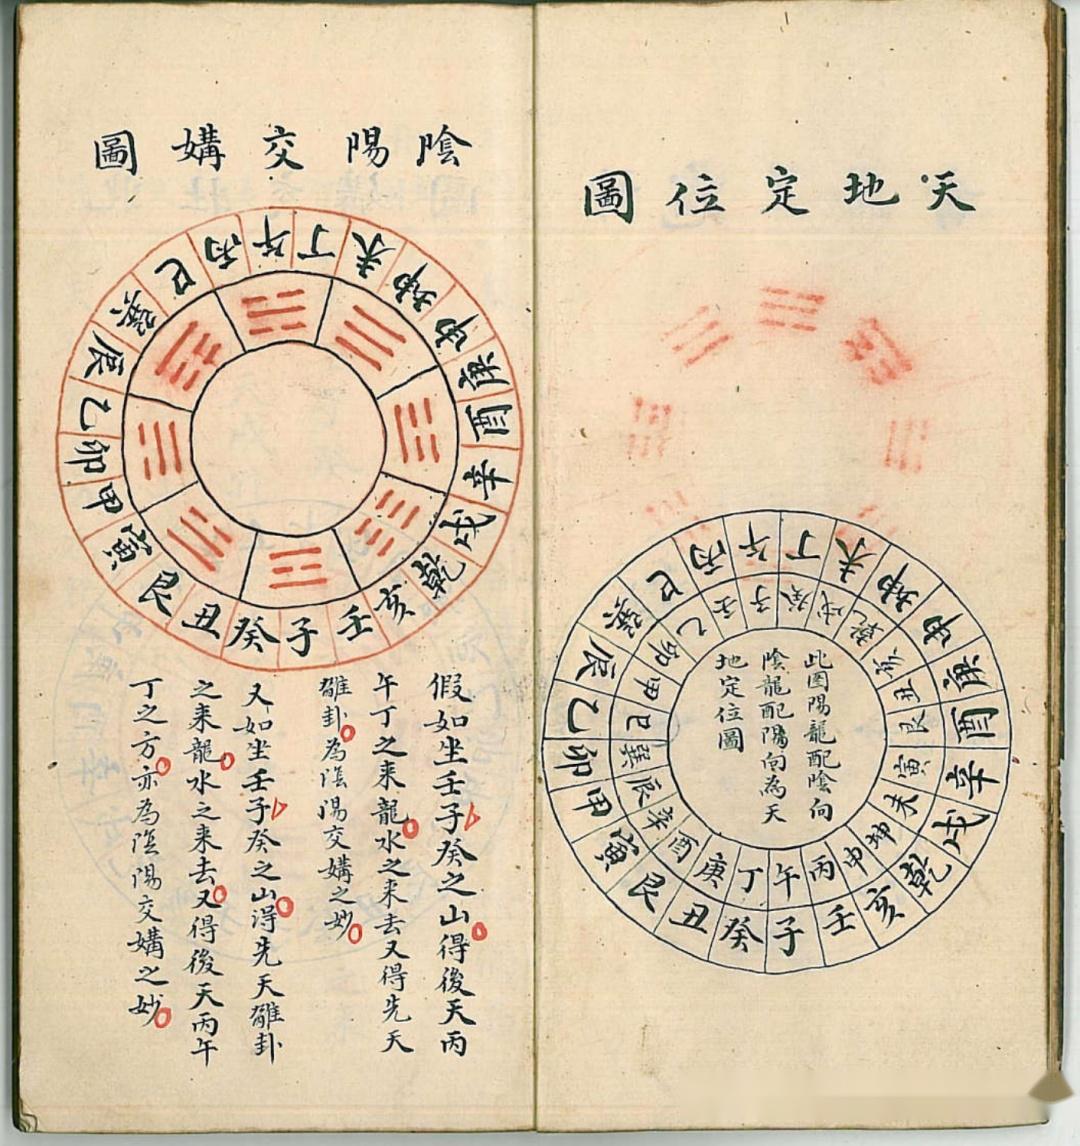 天地定位圖
子癸丑艮寅甲卯乙辰巽巳丙午丁未坤申庚酉辛戌乾亥壬
午丁庚酉辛辰巽巳甲卯乙壬子癸戌乾亥丑艮寅未坤申丙
此圖陽龍配陰向
陰龍配陽向為天
地定位圖
陰陽交媾圖
子癸丑艮寅甲卯乙辰巽巳丙午丁未坤申庚酉辛戌乾亥壬
假如坐壬子癸之山得後天丙
午丁之来龍水之来去又得先天
離卦為陰陽交媾之妙
又如坐壬子癸之山得先天離卦
之来龍水之来去又得後天丙午
丁之方亦為陰陽交媾之妙